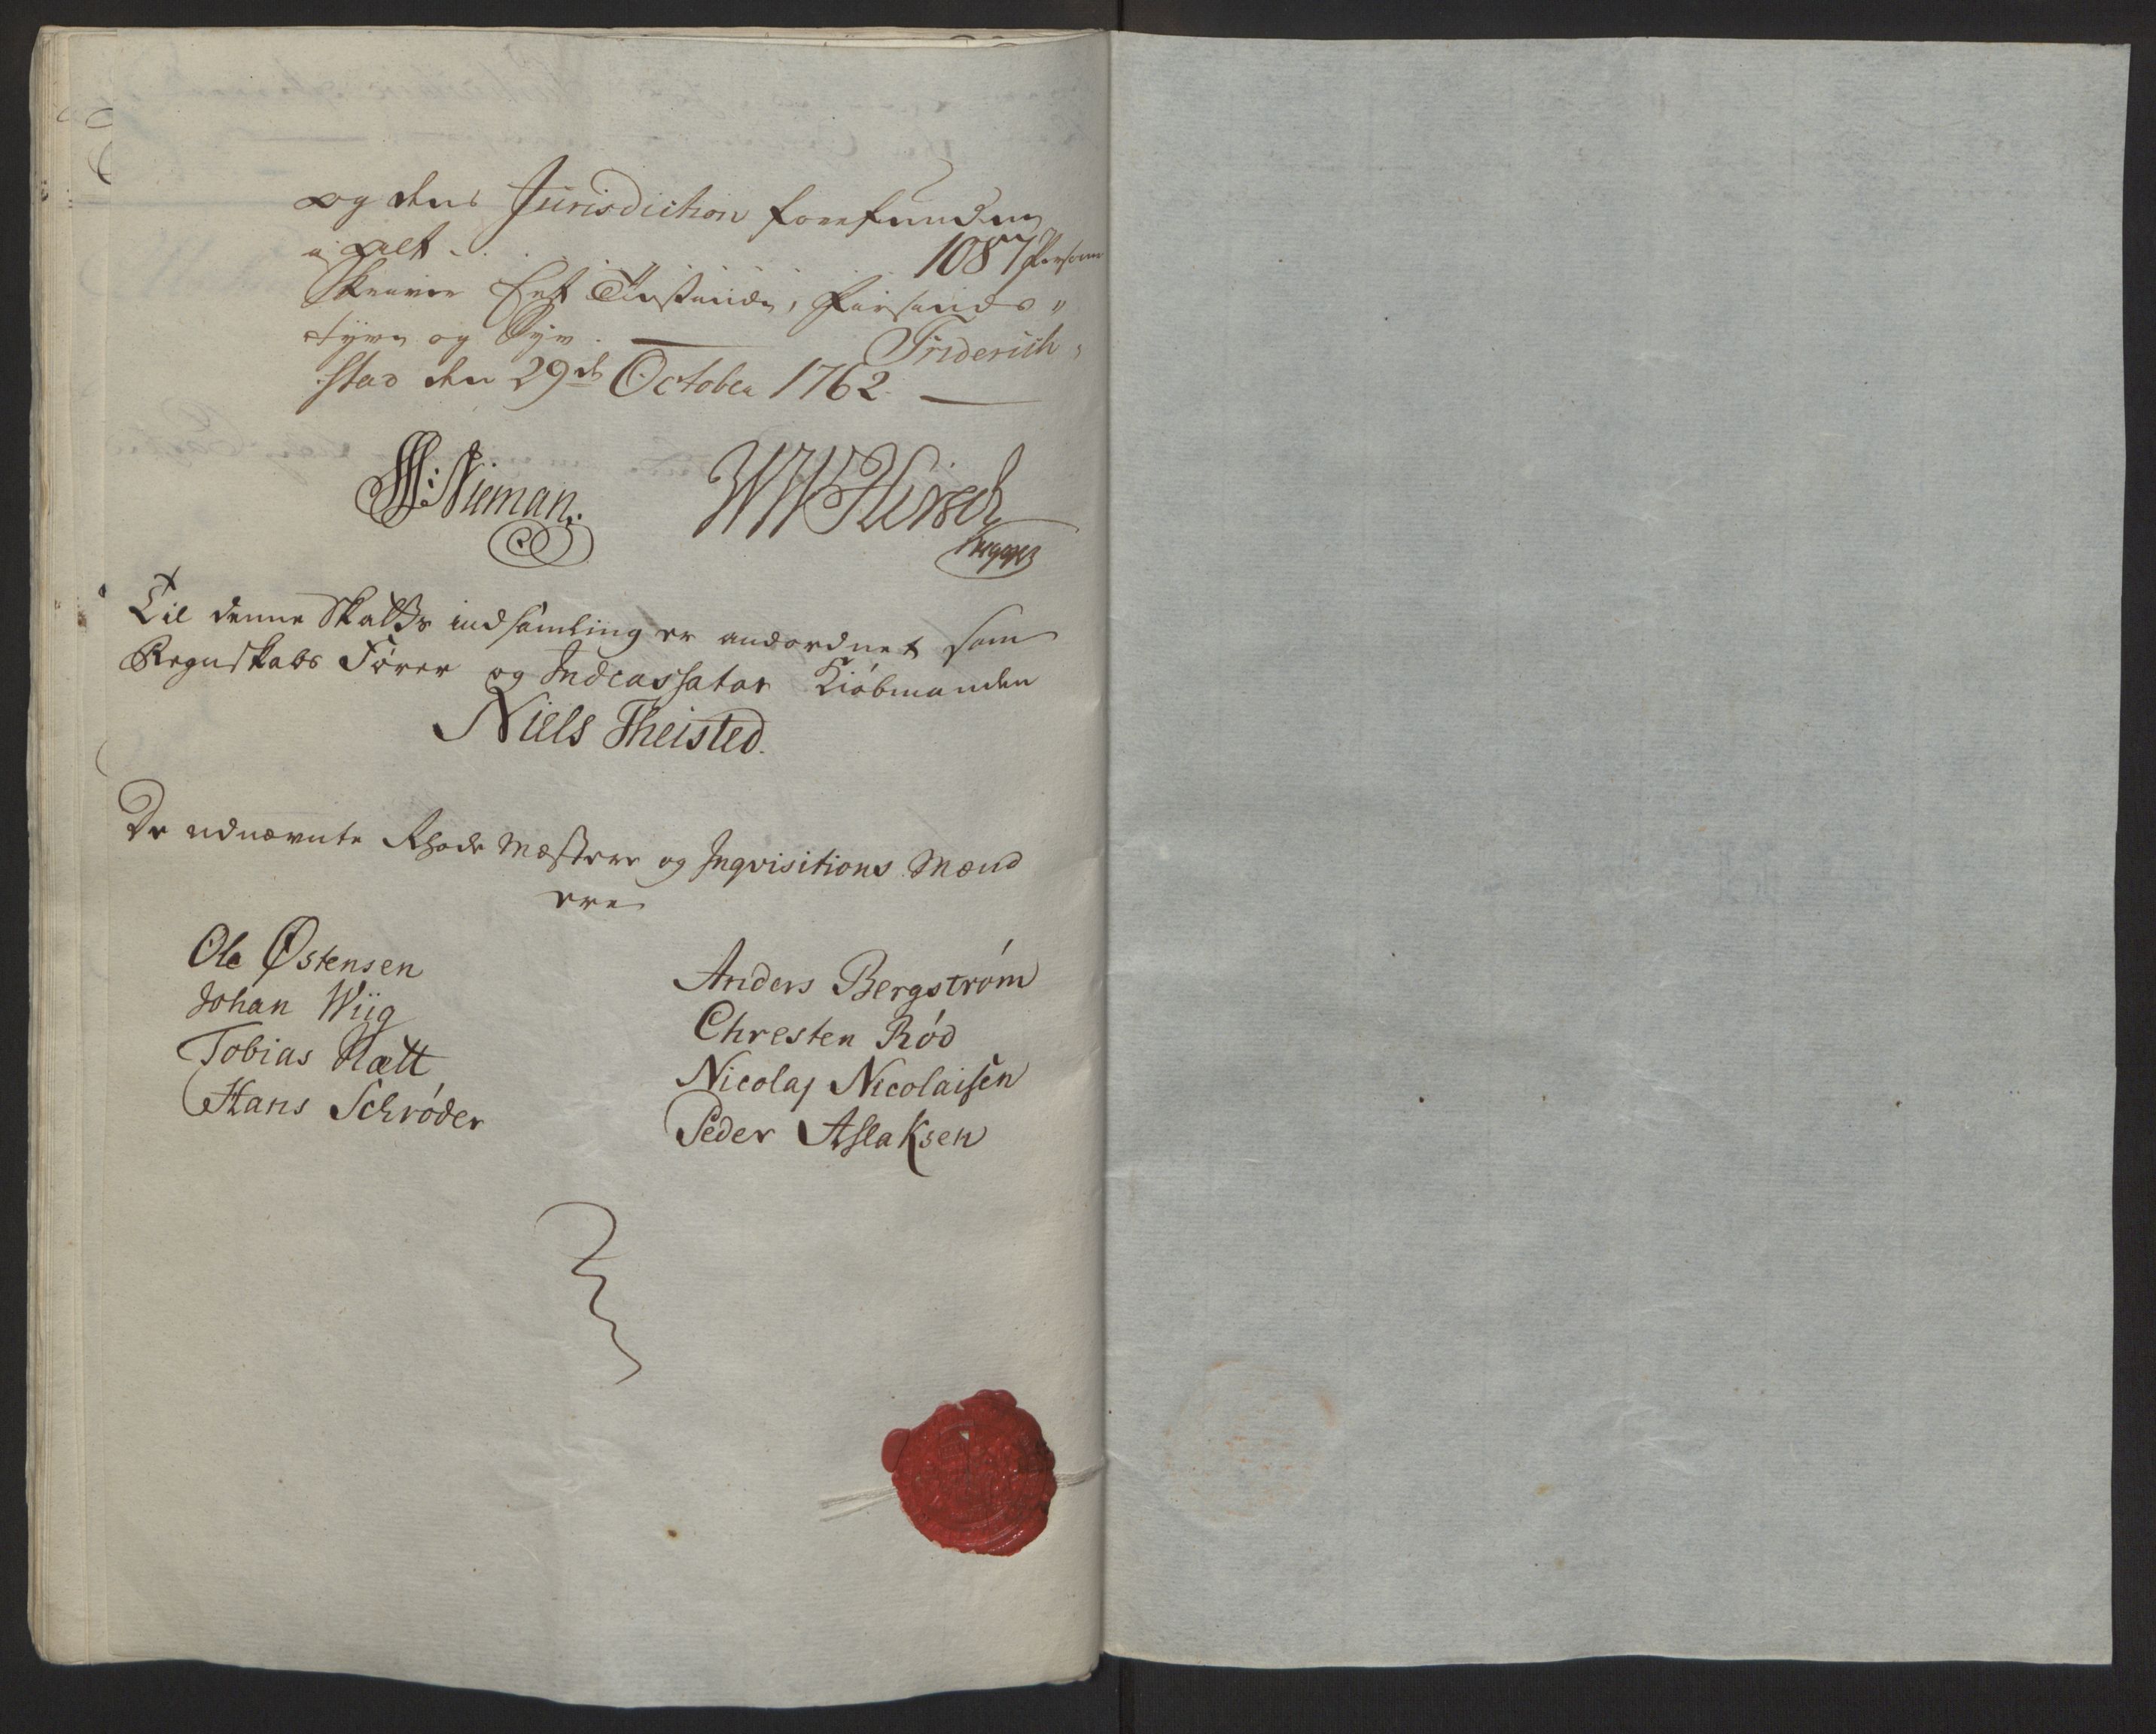 og dens Jurisdiction forefunden
i alt . . . . . . . 1087 Persone
Skriver Eet Tusinde, Firesinds=
tyve og Syv. Friderich=
stad den 29de October 1762.
Nieman.
WWHirsch
Til denne Skatts indsamling er anordnet som
Regnskabs Fører og Indcassator Kiøbmanden
Niels Theisted.
De udnævnte Rhode Mæstere og Inqvisitions Mænd
ere
Ole Østensen
Johan Wiig
Tobias Platt
Hans Schrøder
Anders Bergstrøm
Chresten Rød
Nicolaj Nicolaisen
Peder Aslaksen